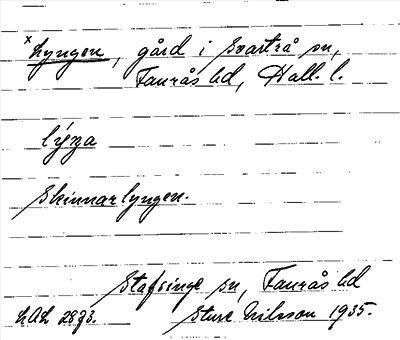 × Lyngen, gård i Svartrå sn,
Faurås hd, Hall. l.
lýŋa
Skinnarlyngen.
Stafsinge sn, Faurås hd
LAL 2873. Sture Nilsson 1935.